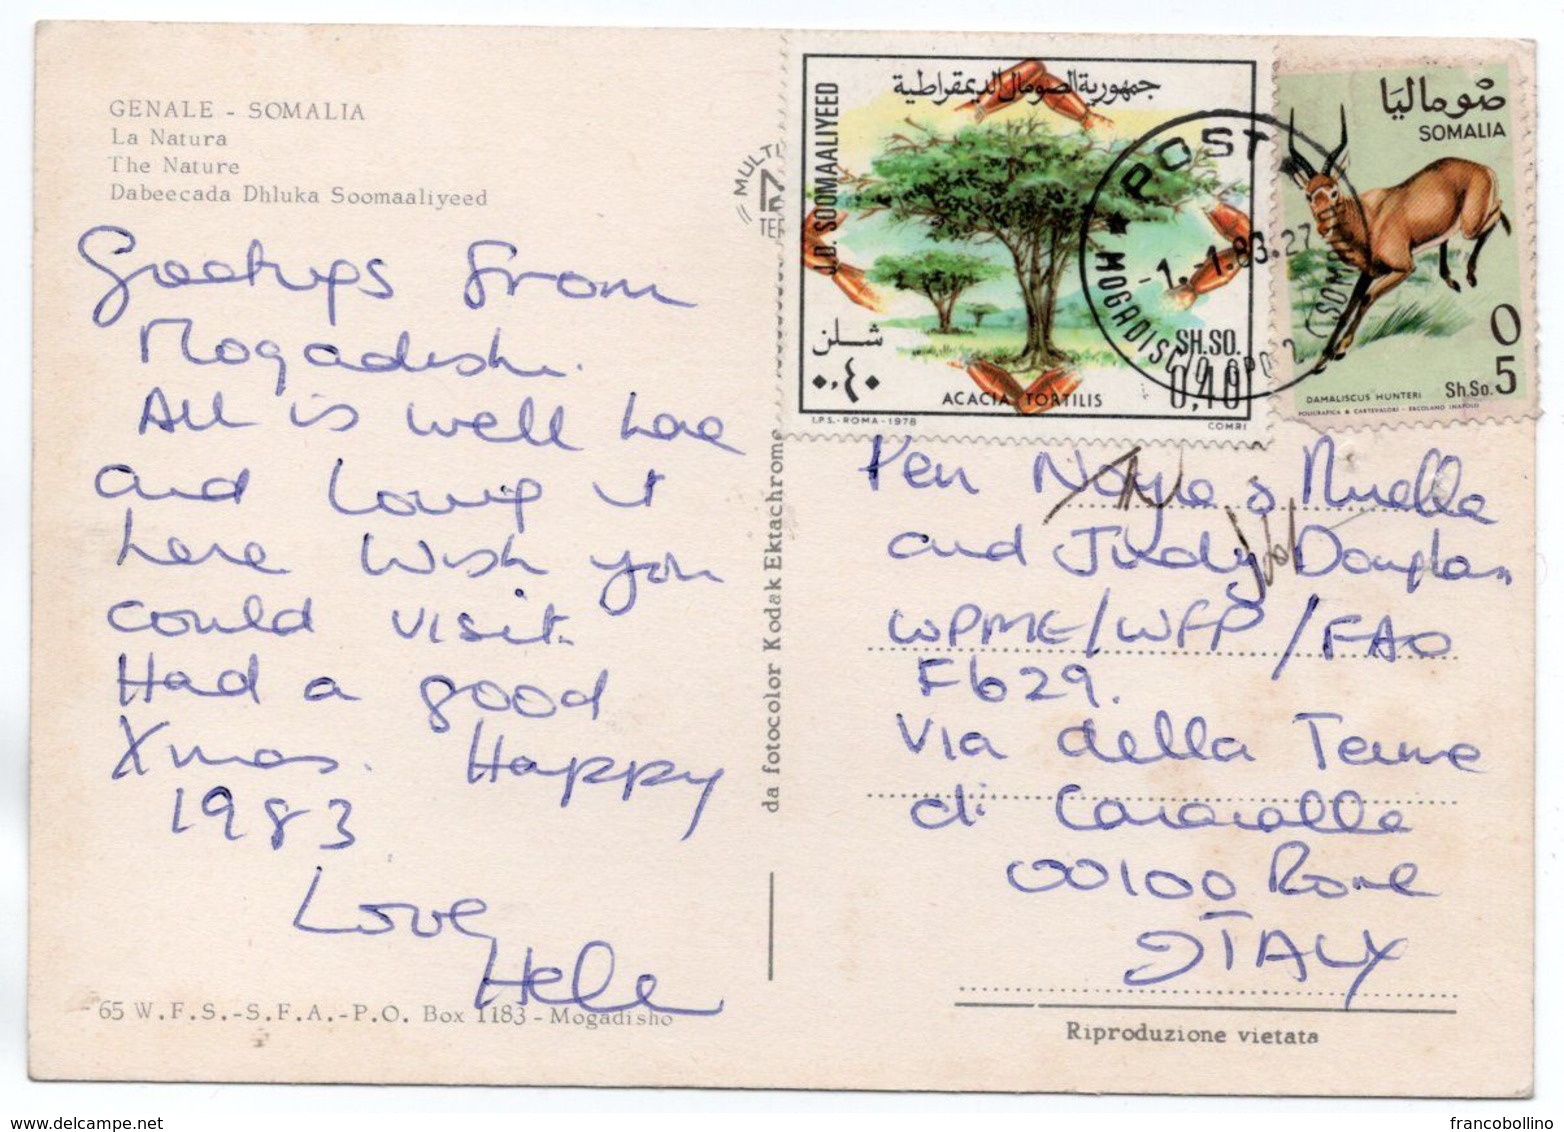 GENALE - SOMALIA
La Natura
The Nature
Dabeecada Dhluka Soomaaliyeed
Greetings from
Mogadishu.
All is well here
and loving it
here Wish you
could visit.
Had a good
Xmas. Happy
1983
Love,
Helen
65 W.F.S.-S.F.A.-P.O. Box 1183 - Mogadisho
da fotocolor Kodak Ektachrome
MULTI
جمهورية الصومال الديمقراطية
J.D. SOOMAALIYEED
شلن
٠,٤٠
SH.SO.
0,40
ACACIA TORTILIS
I.P.S.-ROMA-1978
COMRI
POST
-1.1.83.27
MOGADISCIO
(SOMALIA)
صوماليا
SOMALIA
DAMALISCUS HUNTERI
Sh.So. 0 5
POLIGRAFICA & CARTEVALORI - ERCOLANO (NAPOLI)
Pen Noyce & Nuella
and Judy Douglas
WPME/WFP/FAO
F629.
Via della Terme
di Caracalla
00100 Rome
ITALY
Riproduzione vietata
francobollino